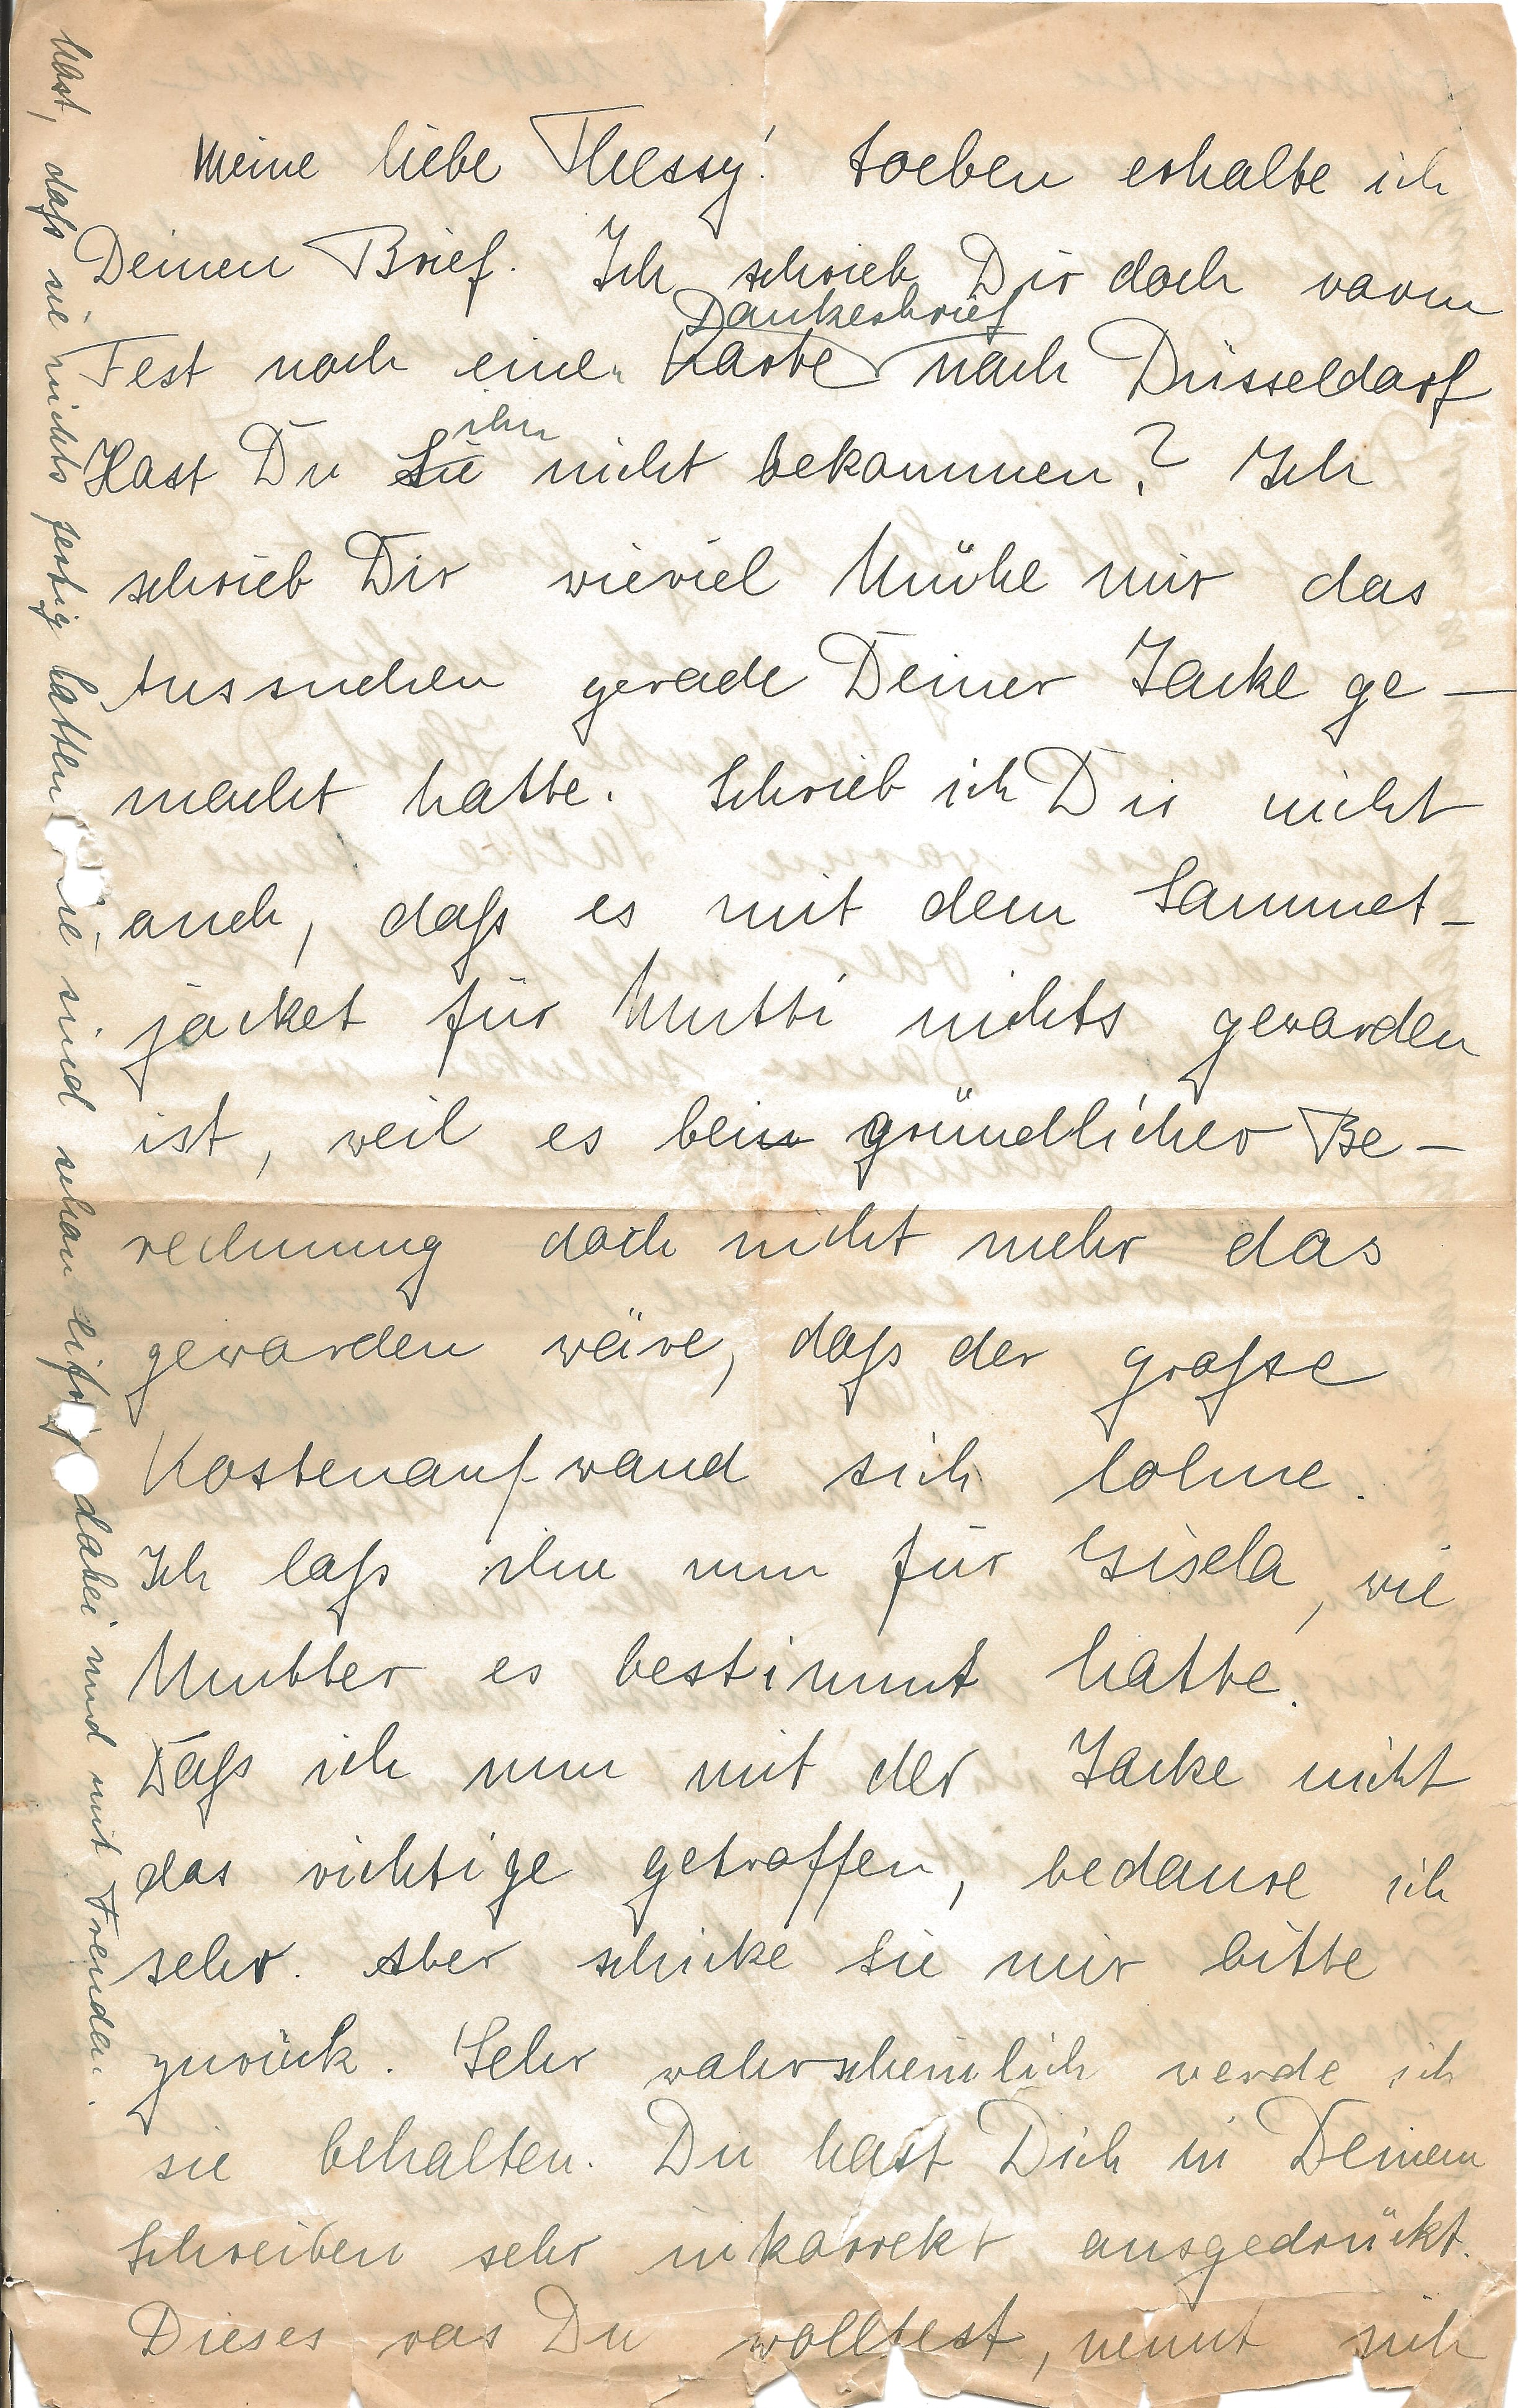 Meine liebe Thessy! Soeben erhalte ich
Deinen Brief. Ich schrieb Dir doch vorm
Dankesbrief
Fest noch einen Karte nach Düsseldorf
ihn
Hast Du Sie nicht bekommen? Ich
schrieb Dir wieviel Mühe mir das
Aussuchen gerade Deiner Jacke ge-
macht hatte. Schrieb ich Dir nicht
auch, daß es mit dem Sammet-
jacket für Mutti nichts geworden
ist, weil es bei gründlicher Be-
rechnung doch nicht mehr das
geworden wäre, daß der große
Kostenaufwand sich lohne.
Ich laß ihn nun für Gisela, wie
Mutter es bestimmt hatte.
Daß ich nun mit der Jacke nicht
das richtige getroffen, bedaure ich
sehr. Aber schicke Sie mir bitte
zurück. Sehr wahrscheinlich werde ich
sie behalten. Du hast Dich in Deinem
Schreiben sehr inkorrekt ausgedrückt.
Dieses was Du wolltest, nennt sich
hast, daß sie nichts fertig hatten. Sie sind schon eifrig dabei und mit Freuden.